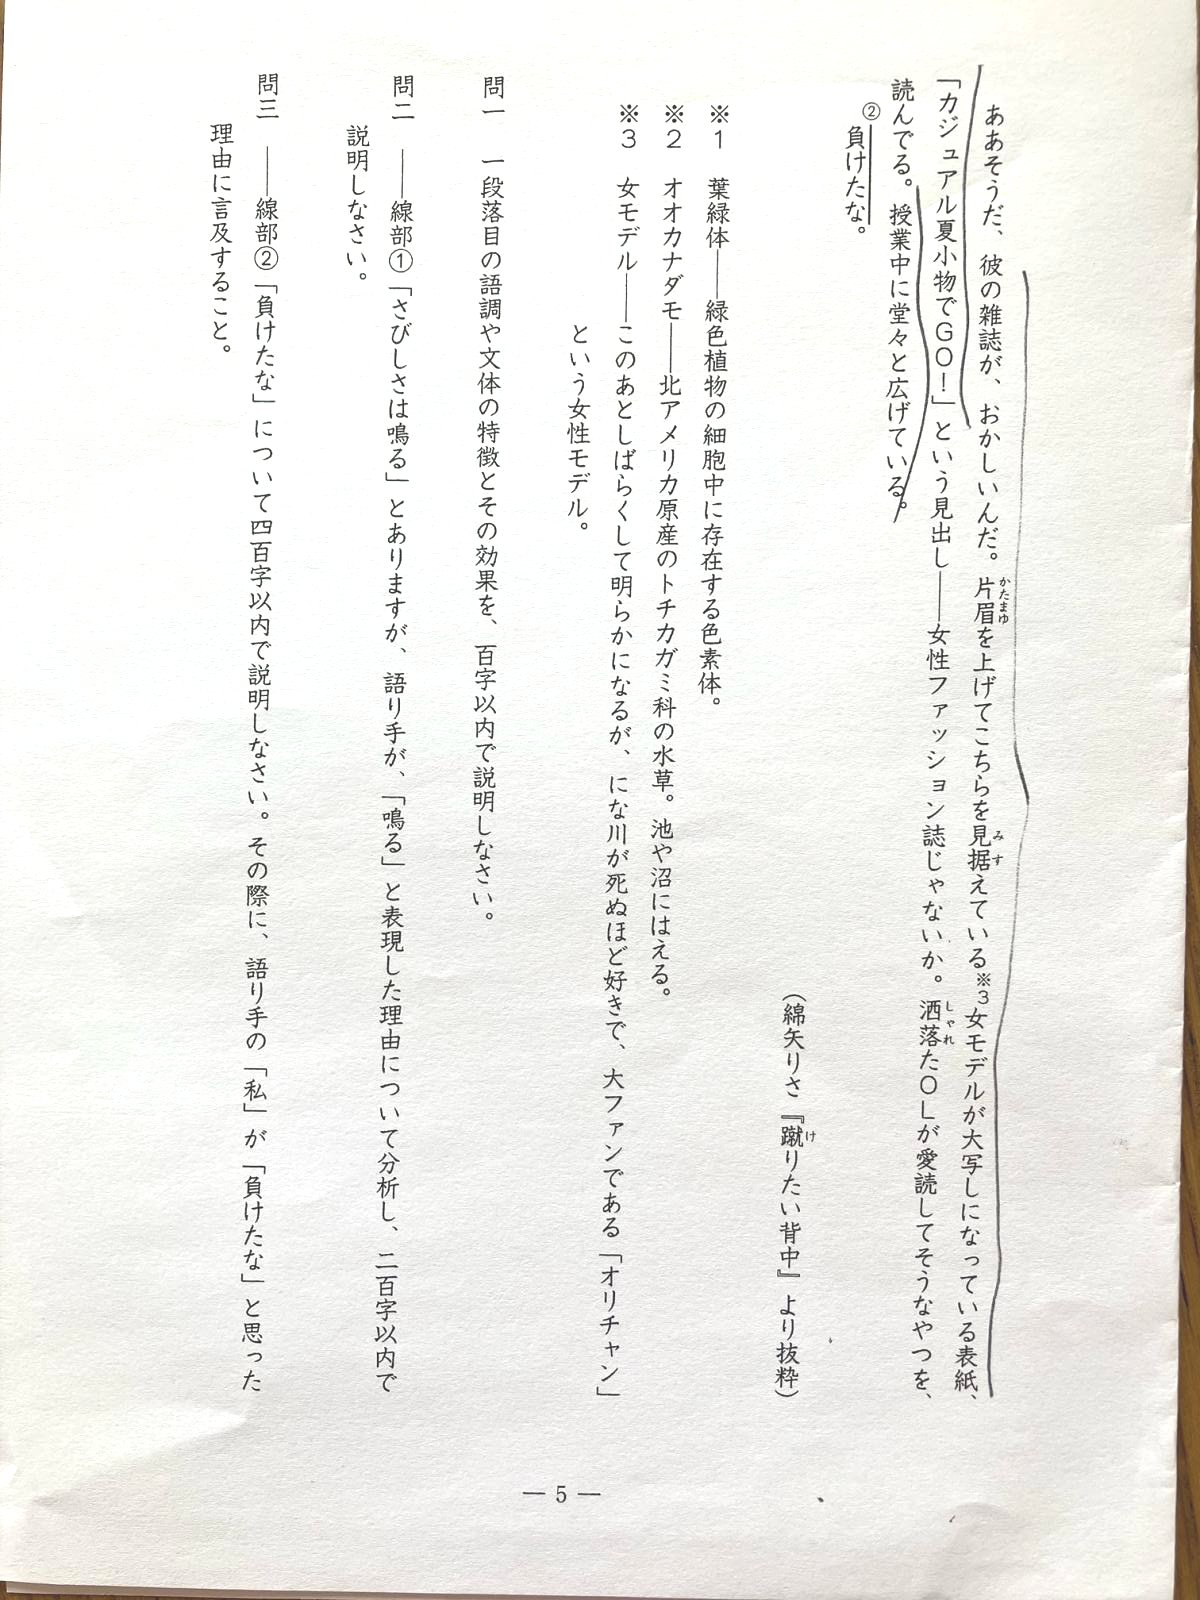 ああそうだ、彼の雑誌が、おかしいんだ。片眉を上げてこちらを見据えている※3女モデルが大写しになっている表紙、
かたまゆ
みす
「カジュアル夏小物でＧＯ！」という見出し――女性ファッション誌じゃないか。洒落たＯＬが愛読してそうなやつを、
しゃれ
読んでる。授業中に堂々と広げている。
②負けたな。
（綿矢りさ『蹴りたい背中』より抜粋）
け
※1 葉緑体――緑色植物の細胞中に存在する色素体。
※2 オオカナダモ――北アメリカ原産のトチカガミ科の水草。池や沼にはえる。
※3 女モデル――このあとしばらくして明らかになるが、にな川が死ぬほど好きで、大ファンである「オリチャン」
という女性モデル。
問一 一段落目の語調や文体の特徴とその効果を、百字以内で説明しなさい。
問二 ――線部①「さびしさは鳴る」とありますが、語り手が、「鳴る」と表現した理由について分析し、二百字以内で
説明しなさい。
問三 ――線部②「負けたな」について四百字以内で説明しなさい。その際に、語り手の「私」が「負けたな」と思った
理由に言及すること。
― 5 ―